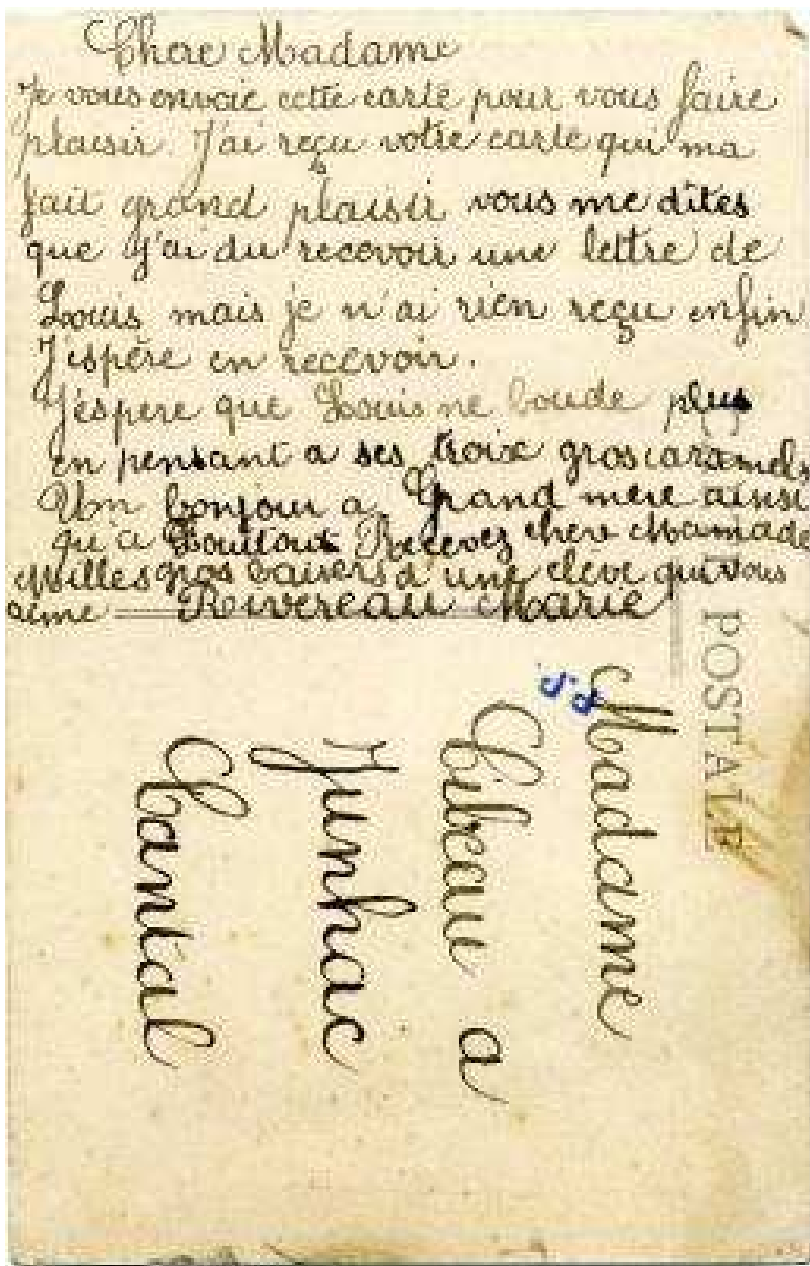 Chere Madame
Je vous envoie cette carte pour vous faire
plaisir. J'ai reçu votre carte qui ma
fait grand plaisir vous me dites
que j'ai du recevoir une lettre de
Louis mais je n'ai rien reçu enfin
J'espère en recevoir.
J'éspere que Louis ne boude plus
en pensant a ses troix gros caramels
Un bonjour a Grand mere ainsi
qu'a Loulout Recevez chere Mamade
Milles gros baisers d'une élève qui vous
aime Rivereau Marie
POSTALE
Madame
a
Junhac
Chantal